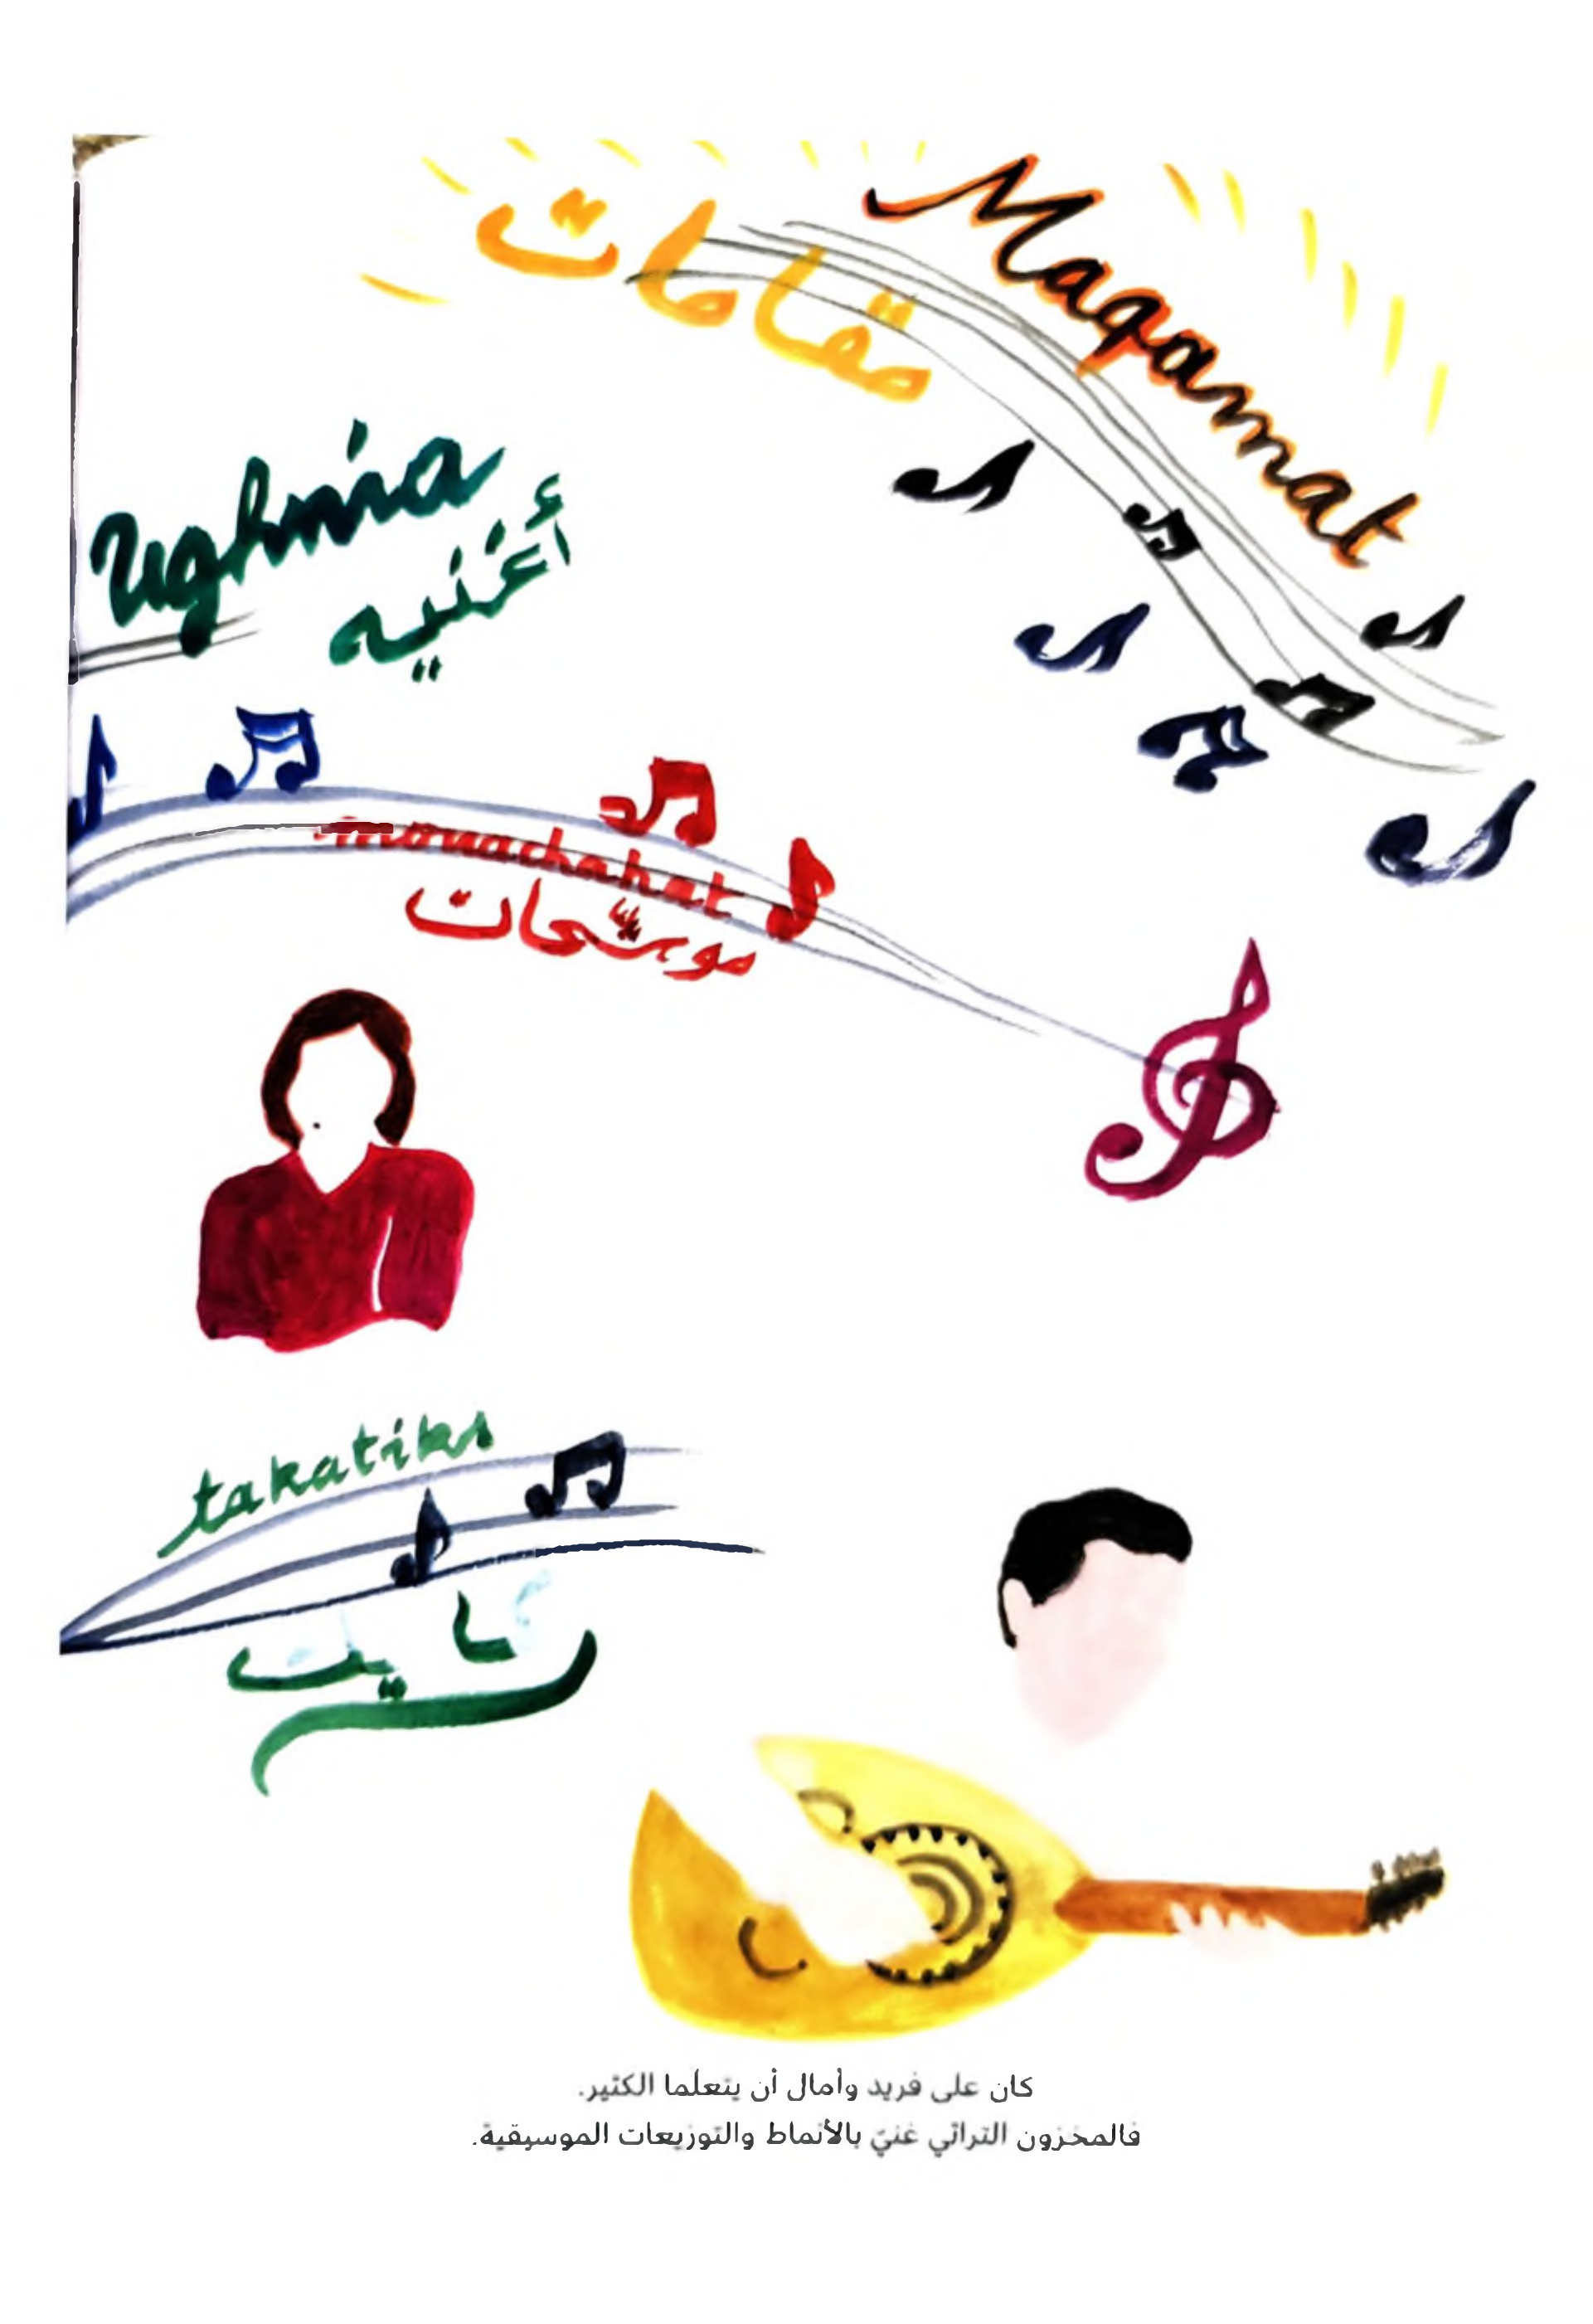 Maqamat
مقامات
Ughnia
أغنيه
mouachahat
موشّحات
takatiks
كان على فريد وأمال أن يتعلّما الكثير.
فالمخزون التراثي غنيّ بالأنماط والتوزيعات الموسيقية.